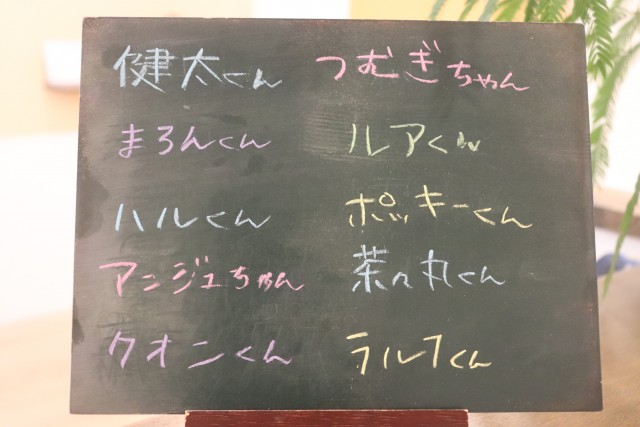 健太くん つむぎちゃん
まろんくん ルアくん
ハルくん ポッキーくん
アンジェちゃん 茶々丸くん
クオンくん ラルフくん